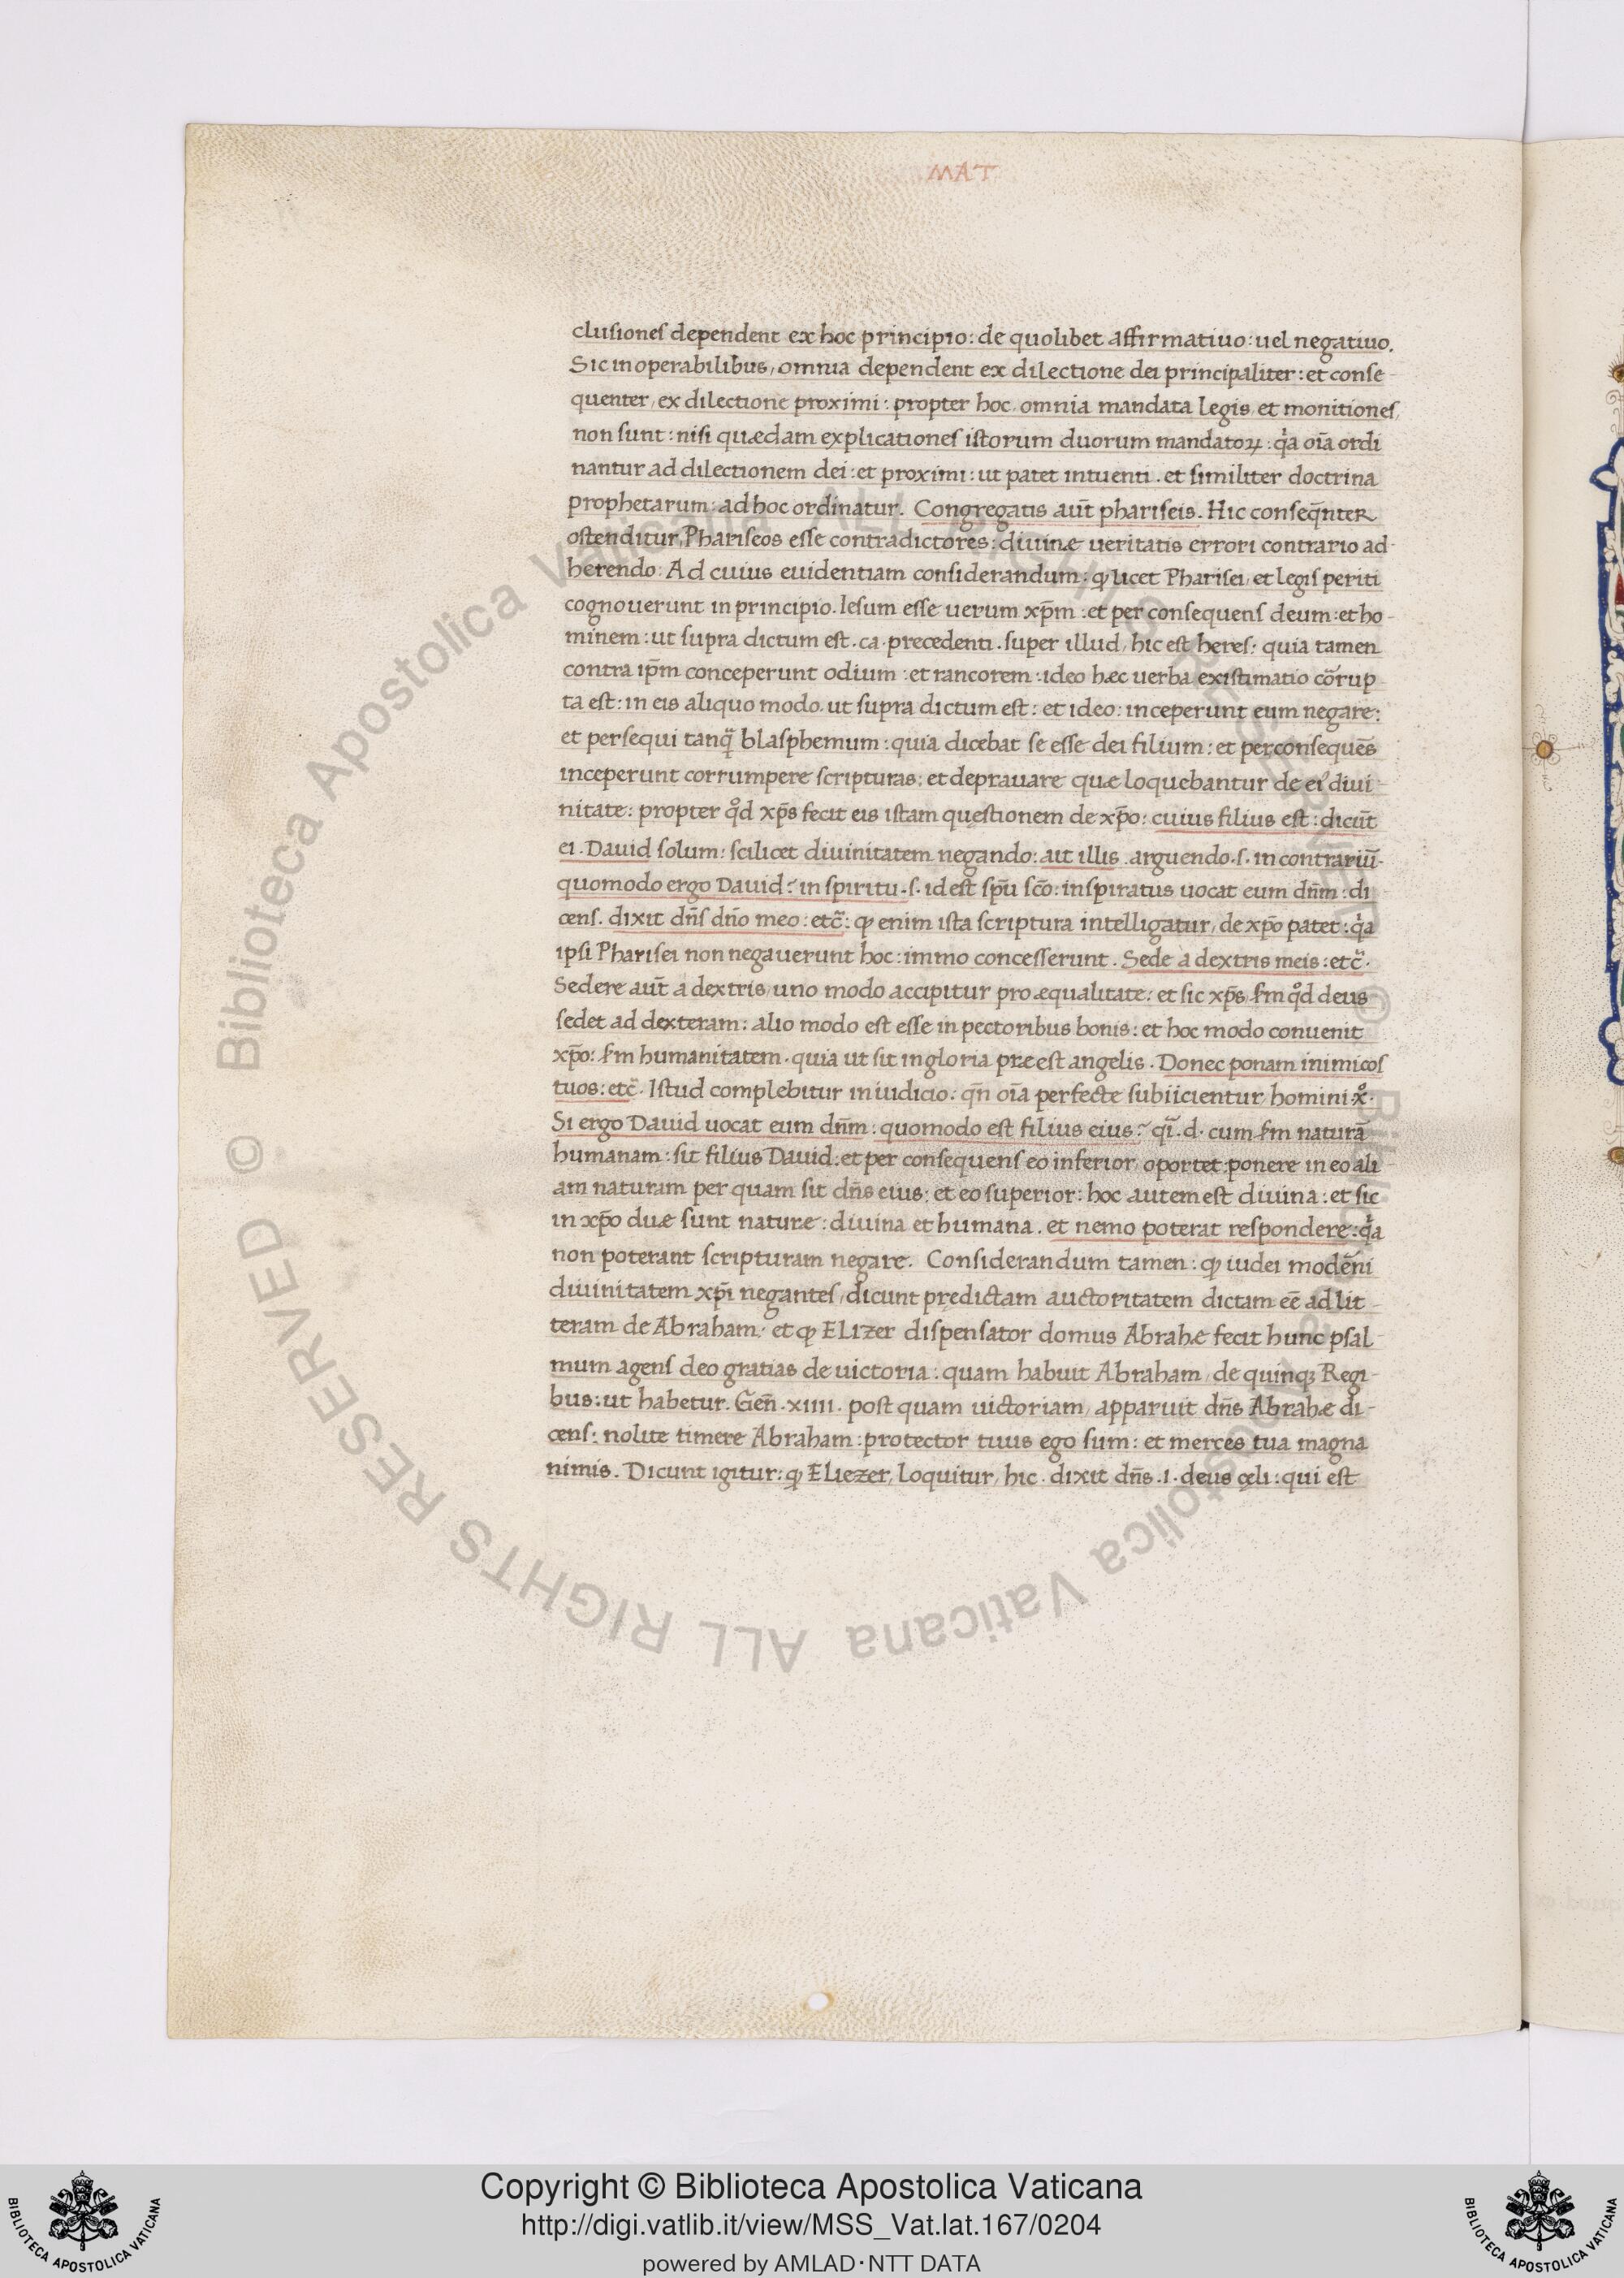 MAT
clusiones dependent ex hoc principio: de quolibet affirmatiuo: uel negatiuo.
Sic in operabilibus, omnia dependent ex dilectione dei principaliter: et conse-
quenter, ex dilectione proximi: propter hoc, omnia mandata legis, et monitiones,
non sunt: nisi quædam explicationes istorum duorum mandatoꝝ: q̇a oīa ordi
nantur ad dilectionem dei: et proximi: ut patet intuenti. et similiter doctrina
prophetarum: ad hoc ordinatur. Congregatis aūt phariseis. Hic conseq̄nter
ostenditur, Phariseos esse contradictores: diuinæ ueritatis errori contrario ad-
herendo: Ad cuius euidentiam considerandum: ꝙ licet Pharisei, et legis periti
cognouerunt in principio. Iesum esse uerum xp̄m: et per consequens deum: et ho-
minem: ut supra dictum est. ca. precedenti. super illud, hic est heres: quia tamen
contra ip̄m conceperunt odium: et rancorem: ideo hæc uerba existimatio cōrrup
ta est: in eis aliquo modo. ut supra dictum est: et ideo: inceperunt eum negare:
et persequi tanq̄ blasphemum: quia dicebat se esse dei filium: et per consequēs
inceperunt corrumpere scripturas: et deprauare quæ loquebantur de ei᾽ diui-
nitate: propter qͦd xp̄s fecit eis istam questionem de xp̄o: cuius filius est: dicūt
ei. Dauid solum: scilicet diuinitatem negando: ait illis. arguendo. s. in contrariū.
quomodo ergo Dauid? in spiritu. s. idest sp̄u sc̄o: inspiratus uocat eum dn̄m: di
cens. dixit dn̄s dn̄o meo: etc̄: ꝙ enim ista scriptura intelligatur, de xp̄o patet: q̇a
ipsi Pharisei non negauerunt hoc: immo concesserunt. Sede a dextris meis: etc̄.
Sedere aūt a dextris, uno modo accipitur pro æqualitate: et sic xp̄s, ẜm qͦd deus
sedet ad dexteram: alio modo est esse in pectoribus bonis: et hoc modo conuenit
xp̄o: ẜm humanitatem. quia ut sit in gloria præest angelis. Donec ponam inimicos
tuos: etc̄. Istud complebitur in iudicio: qn̄ oīa perfecte subiicientur, homini xͦ:
Si ergo Dauid uocat eum dn̄m: quomodo est filius eius? qī. d. cum ẜm naturā
humanam: sit filius Dauid: et per consequens eo inferior, oportet: ponere in eo ali-
am naturam per quam sit dn̄s eius: et eo superior: hoc autem est diuina: et sic
in xp̄o duæ sunt naturæ: diuina et humana. et nemo poterat respondere: q̇a
non poterant scripturam negare. Considerandum tamen: ꝙ iudei modēni
diuinitatem xp̄i negantes, dicunt prędictam auctoritatem dictam eē ad lit-
teram de Abraham: et ꝙ Elizer dispensator domus Abrahæ fecit hunc psal-
mum agens deo gratias de uictoria: quam habuit Abraham, de quinqꝫ Regi-
bus: ut habetur. Geñ. xiiii. post quam uictoriam, apparuit dn̄s Abrahæ di-
cens: nolite timere Abraham: protector tuus ego sum: et merces tua magna
nimis. Dicunt igitur: ꝙ Eliezer, loquitur, hic. dixit dn̄s. i. deus cęli: qui est
© Biblioteca Apostolica Vaticana ALL RIGHTS RESERVED © Biblioteca Apostolica Vaticana ALL RIGHTS RESERVED
Copyright © Biblioteca Apostolica Vaticana
http://digi.vatlib.it/view/MSS_Vat.lat.167/0204
powered by AMLAD·NTT DATA
BIBLIOTECA APOSTOLICA VATICANA
BIBLIOTECA APOSTOLICA VATICANA